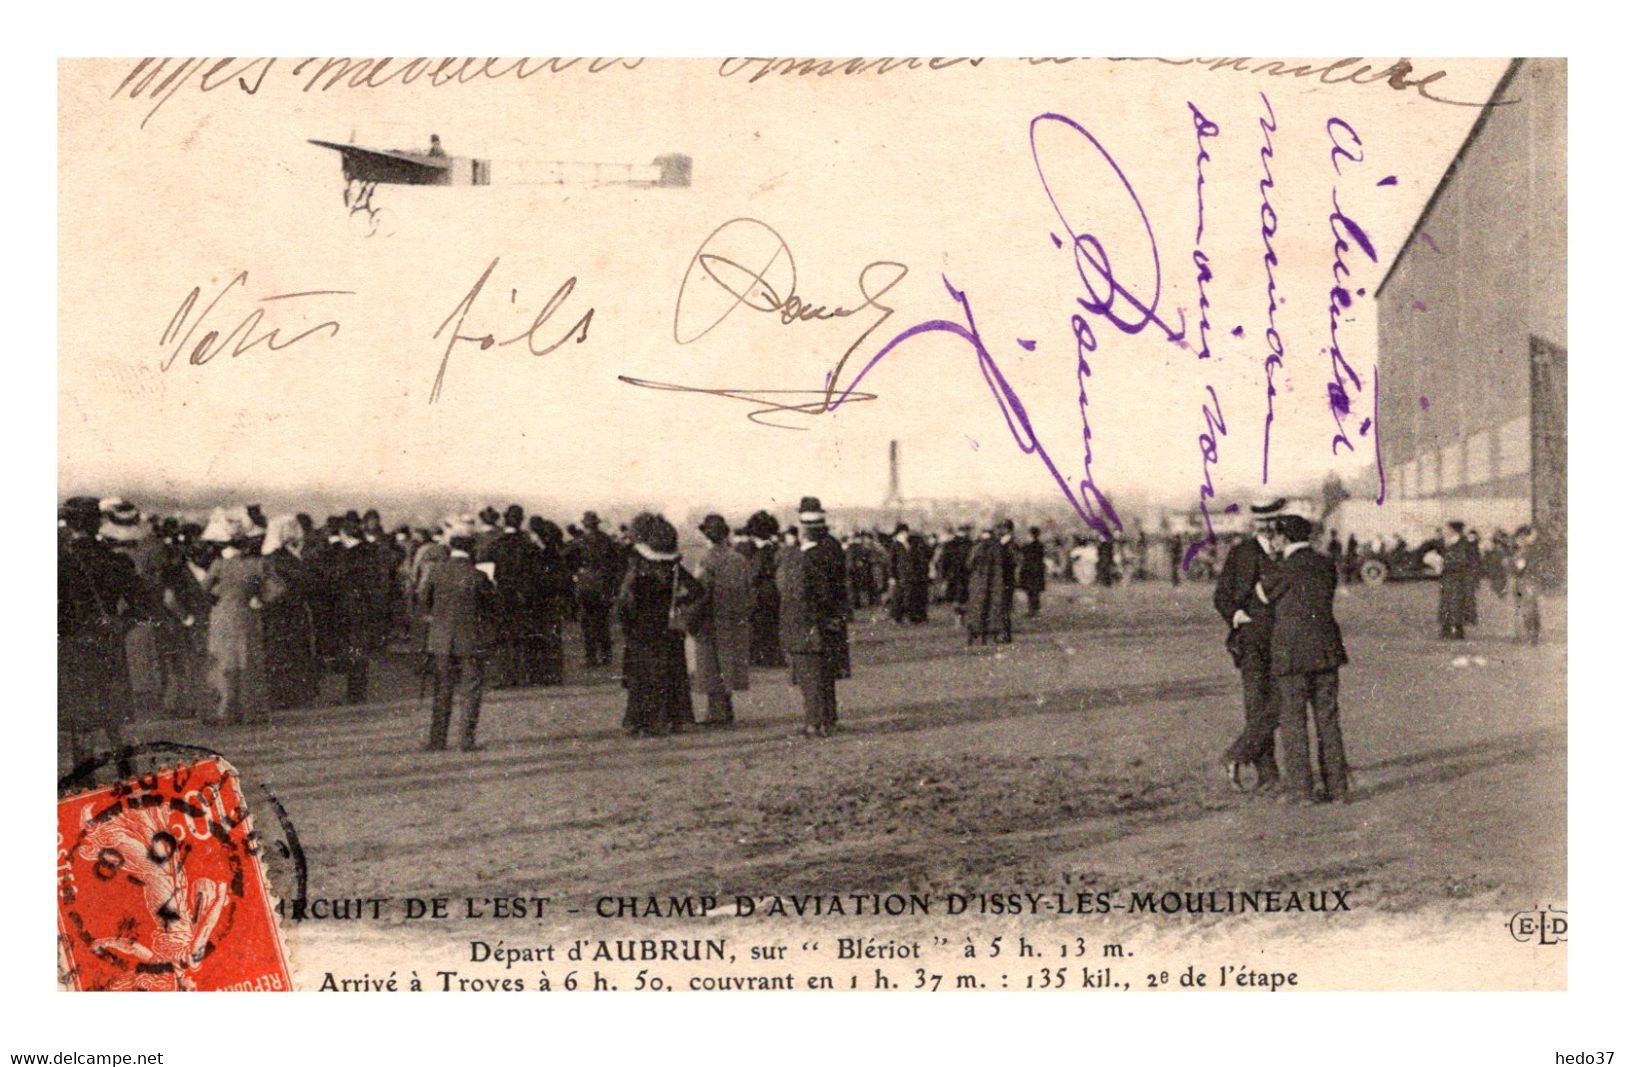 Mes meilleurs
Votre fils
à bientôt
maman
au revoir
CIRCUIT DE L'EST - CHAMP D'AVIATION D'ISSY-LES-MOULINEAUX
Départ d'AUBRUN, sur “ Blériot ” à 5 h. 13 m.
Arrivé à Troyes à 6 h. 50, couvrant en 1 h. 37 m. : 135 kil., 2e de l'étape
E.L.D
10c
www.delcampe.net
hedo37